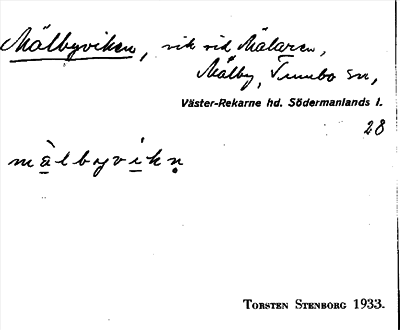 Mälbyviken, vik vid Mälaren,
Mälby, Tumbo sn,
Väster-Rekarne hd. Södermanlands l.
28
mä̀lbyvikn̥
TORSTEN STENBORG 1933.